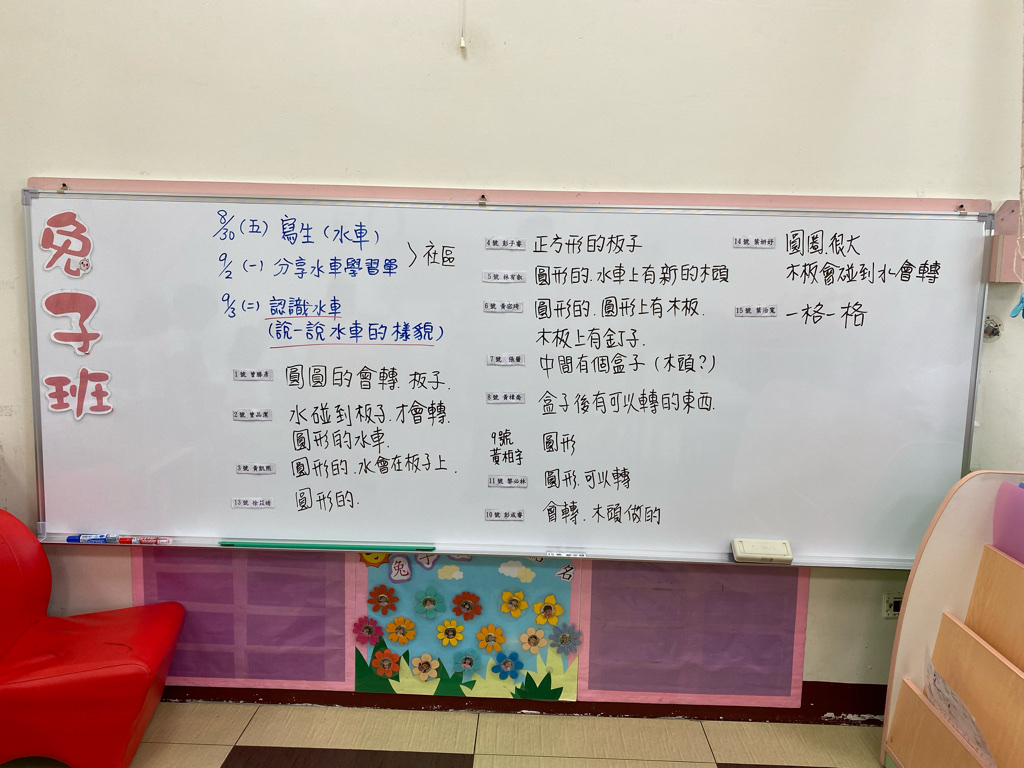 兔子班
8/30(五) 寫生(水車)
9/2(一) 分享水車學習單 〉社區
9/3(二) 認識水車
(說一說水車的樣貌)
1號 曾勝彥 圓圓的會轉.板子.
2號 曾品潔 水碰到板子.才會轉.
圓形的水車.
3號 黃凱熙 圓形的.水會在板子上.
13號 徐苡晴 圓形的.
4號 彭子睿 正方形的板子
5號 林宥叡 圓形的.水車上有新的木頭
6號 黃宓琦 圓形的.圓形上有木板.
木板上有釘子.
7號 張馨 中間有個盒子(木頭?)
8號 黃禕喬 盒子後有可以轉的東西.
9號 黃柏宇 圓形
11號 黎必林 圓形.可以轉
10號 彭成睿 會轉.木頭做的
14號 葉妍妤 圓圈.很大
木板會碰到水.會轉
15號 葉治寬 一格一格
兔子
名